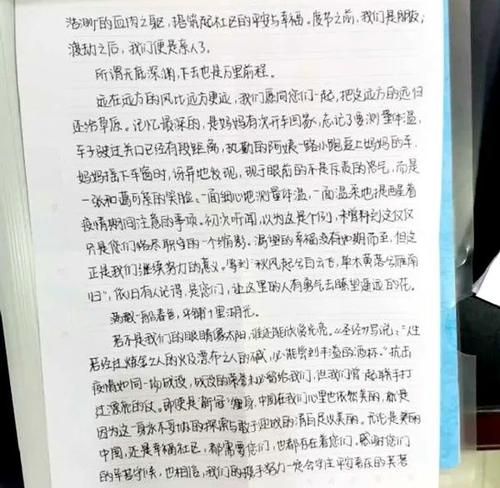 浩渺的血肉之躯，撑筑起社区的平安与幸福。度节之前，我们是朋友；
渡劫之后，我们便是亲人了。
所谓无底深渊，下去也是万里前程。
远在远方的风比远方更远，我们愿同您们一起，把这远方的远归
还给草原。记忆最深的，是妈妈有次开车回家，忘记了要测量体温，
车子驶过关口已经有段距离，执勤的阿姨一路小跑赶上妈妈的车，
妈妈摇下车窗时，讶异地发现，现于眼前的不是斥责的怒气，而是
一张和蔼可亲的笑脸，一面细心地测量体温，一面温柔地提醒着
疫情期间注意的事项。初次听闻，以为这是个例，未曾料到这仅仅
只是您们恪尽职守的一个缩影。满溢的幸福没有如期而至，但这
正是我们继续努力的意义。等到“秋风起兮白云飞，草木黄落兮雁南
归”，依旧有人记得，是您们，让这里的人有勇气去瞻望遥远的花。
满载一船春色，平铺十里湖光。
若不是我们的眼睛像太阳，谁还能欣赏光亮。《圣经》写说：“人
若经过炼金之人的火及漂布之人的碱，必能尝到丰溢的酒杯。”抗击
疫情如同一场战役，战役的荣誉未必留给我们，但我们曾起联手打
过漂亮的仗。即使是“新冠”缠身，中国在我们心里也依然美丽，就是
因为这一身永不妥协的探索与敢于迎战的清白足以美丽。无论是美丽
中国，还是幸福社区，都需要您们，也都存在着您们。感谢您们
的辛苦守候，也相信，我们的携手努力一定会守主平安喜在的芙蓉